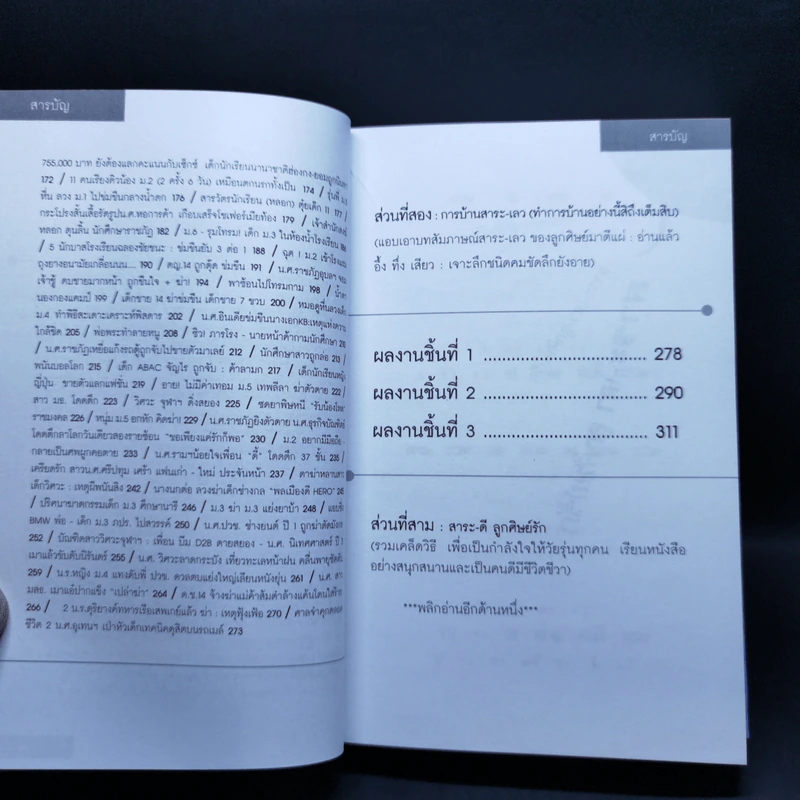 สารบัญ
755,000 บาท ยังต้องแลกคะแนนกับเซ็กซ์ เด็กนักเรียนนานาชาติฮ่องกง
172 / 11 คนเรียงคิวน้อง ม.2 (2 ครั้ง 6 วัน) เหมือนตกนรกทั้งเป็น 174 / รุ่นพี่
หื่น ลวง ม.1 ไปข่มขืนกลางน้ำตก 176 / สารวัตรนักเรียน (หลอก) ตุ๋ยเด็ก 11 177 /
กระโปรงสั้นเสื้อรัดรูปน.ศ.หอการค้า เกือบเสร็จโชเฟอร์เมียท้อง 179 / เจ้าสำนัก
หลอก ตุนลิ้น นักศึกษาราชภัฏ 182 / ม.6 - รุมโทรม! เด็ก ม.3 ในห้องน้ำโรงเรียน 186
/ 5 นักบาสโรงเรียนฉลองชัยชนะ : ข่มขืนยับ 3 ต่อ 1 188 / ฉุด ! ม.2 เข้าโรงแรม
ถุงยางอนามัยเกลื่อนนน.... 190 / ดญ.14 ถูกตุ๊ด ข่มขืน 191 / น.ศ.ราชภัฏ
เจ้าชู้ คบชายมากหน้า ถูกขืนใจ + ฆ่า! 194 / พาซ้อนไปโทรมกาม 198 /
นองกองแคมป์ 199 / เด็กชาย 14 ฆ่าข่มขืน เด็กชาย 7 ขวบ 200 / หมอดูหื่นลวงเด็ก
ม.4 ทำพิธีสะเดาะเคราะห์พิสดาร 202 / น.ศ.อินเดียข่มขืนนางเอกKB:เหตุแห่งความ
ใกล้ชิด 205 / พ่อพระทำลายหนู 208 / ซิว! ภารโรง - นายหน้าค้ากามนักศึกษา 210
/ น.ศ.ราชภัฏเหยื่อแก๊งรถตู้ถูกจับไปขายตัวมาเลย์ 212 / นักศึกษาสาวถูกล่อ 213 /
พนันบอลโลก 215 / เด็ก ABAC จัญไร ถูกจับ : ค้าลามก 217 / เด็กนักเรียนหญิง
ญี่ปุ่น ขายตัวแลกแฟชั่น 219 / อาย! ไม่มีค่าเทอม ม.5 เทพลีลา ฆ่าตัวตาย 222 /
สาว มธ. โดดตึก 223 / วิศวะ จุฬาฯ ดิ่งสยอง 225 / ชดยาพิษหนี "รับน้องโหด"
ราชมงคล 226 / หนุ่ม ม.5 อกหัก คิดฆ่า! 229 / น.ศ.ราชภัฏยิงตัวตาย น.ศ.ธุรกิจบัณฑิตย์
โดดตึกลาโลกวันเดียวสองรายซ้อน "ขอเพียงแค่รักก็พอ" 230 / ม.2 อยากมีมือถือ
กลายเป็นศพผูกคอตาย 233 / น.ศ.รามฯน้อยใจเพื่อน "ดี้" โดดตึก 37 ชั้น 235 /
เครียดรัก สาวน.ศ.ศรีปทุม เศร้า แฟนเก่า - ใหม่ ประจันหน้า 237 / ตาฆ่าหลานสาว
เด็กวิศวะ : เหตุผีพนันสิง 242 / นางนกต่อ ลวงฆ่าเด็กช่างกล "พลเมืองดี HERO" 245
/ ปริศนาฆาตกรรมเด็ก ม.3 ศึกษานารี 246 / ม.3 ฆ่า ม.3 แย่งยาบ้า 248 /
BMW พ่อ - เด็ก ม.3 ภปร. ไปสวรรค์ 250 / น.ศ.ปวช. ช่างยนต์ ปี 1 ถูกฆ่าตัดมือ
252 / บัณฑิตสาววิศวะจุฬาฯ : เพื่อน บึ้ม D2B ตายสยอง - น.ศ. นิเทศศาสตร์ ปี 1
เมาแล้วขับดับนิรันดร์ 255 / น.ศ. วิศวะลาดกระบัง เที่ยวทะเลหน้าฝน คลื่นพายุซัดดับ
259 / น.ร.หญิง ม.4 แทงดับพี่ ปวช. ดวลตบแย่งใหญ่เลียนหนังยุ่น 261 / น.ศ. สาว
มสธ. เมาแอ๋ปากแข็ง "เปล่าฆ่า" 264 / ด.ช.14 จ้างฆ่าแม่ค้าส้มตำล้างแค้นโดนใส่ร้าย
266 / 2 น.ร.ดุริยางค์ทหารเรือเสพเกย์แล้ว ฆ่า : เหตุฟุ้งเฟ้อ 270 / ศาลจำคุกตลอด
ชีวิต 2 น.ศ.อุเทนฯ เป่าหัวเด็กเทคนิคดุสิตบนรถเมล์ 273
สารบัญ
ส่วนที่สอง : การบ้านสาระ-เลว (ทำการบ้านอย่างนี้สิถึงเต็มสิบ)
(แอบเอาบทสัมภาษณ์สาระ-เลว ของลูกศิษย์มาตีแผ่ : อ่านแล้ว
อึ้ง ทึ่ง เสียว : เจาะลึกชนิดคมชัดลึกยังอาย)
ผลงานชิ้นที่ 1 ........................................ 278
ผลงานชิ้นที่ 2 ........................................ 290
ผลงานชิ้นที่ 3 ........................................ 311
ส่วนที่สาม : สาระ-ดี ลูกศิษย์รัก
(รวมเคล็ดวิธี เพื่อเป็นกำลังใจให้วัยรุ่นทุกคน เรียนหนังสือ
อย่างสนุกสนานและเป็นคนดีมีชีวิตชีวา)
***พลิกอ่านอีกด้านหนึ่ง***